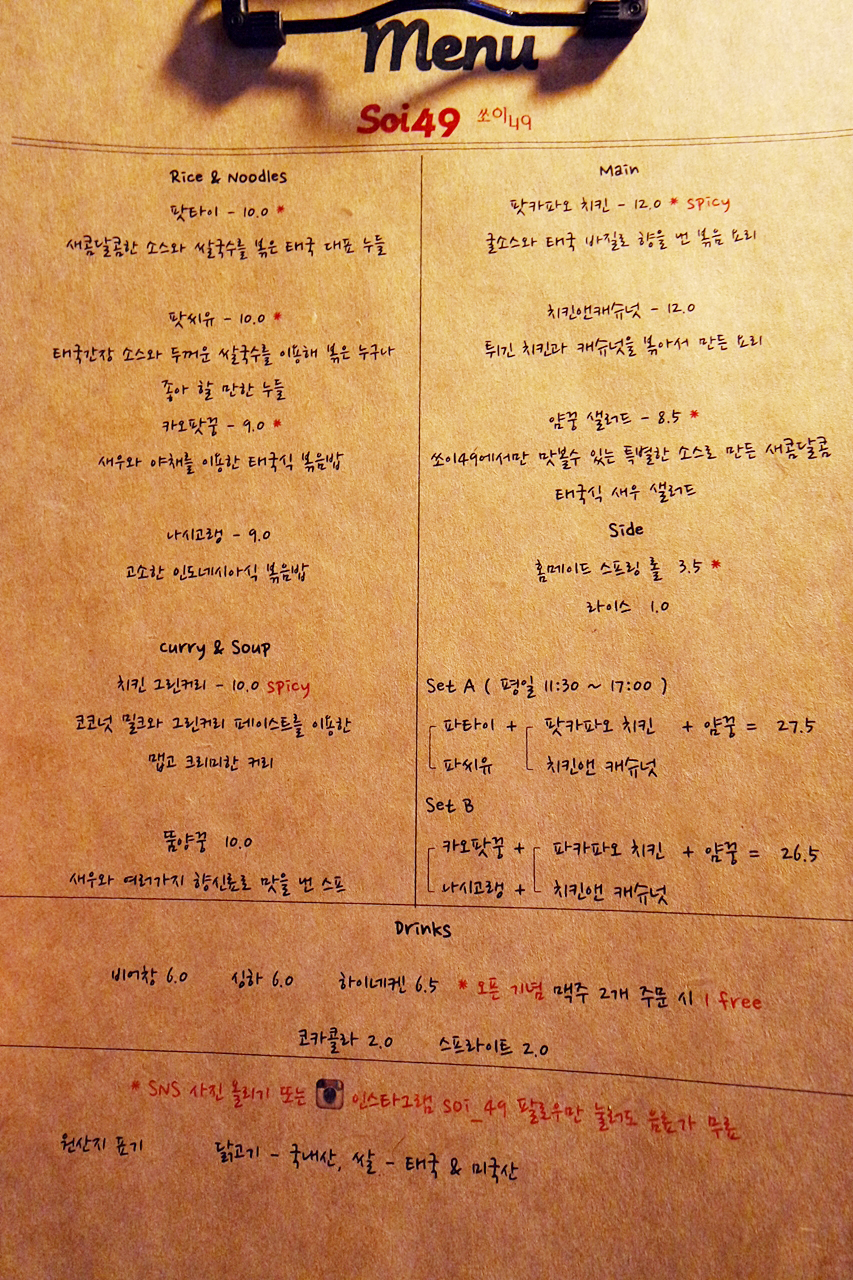 Menu
Soi49 쏘이49
Rice & Noodles
팟타이 - 10.0 *
새콤달콤한 소스와 쌀국수를 볶은 태국 대표 누들
팟씨유 - 10.0 *
태국간장 소스와 두꺼운 쌀국수를 이용해 볶은 누구나
좋아 할 만한 누들
카오팟꿍 - 9.0 *
새우와 야채를 이용한 태국식 볶음밥
나시고랭 - 9.0
고소한 인도네시아식 볶음밥
Curry & Soup
치킨 그린커리 - 10.0 spicy
코코넛 밀크와 그린커리 페이스트를 이용한
맵고 크리미한 커리
똠양꿍 10.0
새우와 여러가지 향신료로 맛을 낸 스프
Main
팟카파오 치킨 - 12.0 * spicy
굴소스와 태국 바질로 향을 낸 볶음 요리
치킨앤캐슈넛 - 12.0
튀긴 치킨과 캐슈넛을 볶아서 만든 요리
얌꿍 샐러드 - 8.5 *
쏘이49에서만 맛볼수 있는 특별한 소스로 만든 새콤달콤
태국식 새우 샐러드
Side
홈메이드 스프링 롤 3.5 *
라이스 1.0
Set A ( 평일 11:30 ~ 17:00 )
파타이 + 팟카파오 치킨 + 얌꿍 = 27.5
파씨유 치킨앤 캐슈넛
Set B
카오팟꿍 + 파카파오 치킨 + 얌꿍 = 26.5
나시고랭 + 치킨앤 캐슈넛
Drinks
비어창 6.0 싱하 6.0 하이네켄 6.5 * 오픈 기념 맥주 2개 주문 시 1 free
코카콜라 2.0 스프라이트 2.0
* SNS 사진 올리기 또는 인스타그램 soi_49 팔로우만 눌러도 음료가 무료
원산지 표기 닭고기 - 국내산, 쌀 - 태국 & 미국산